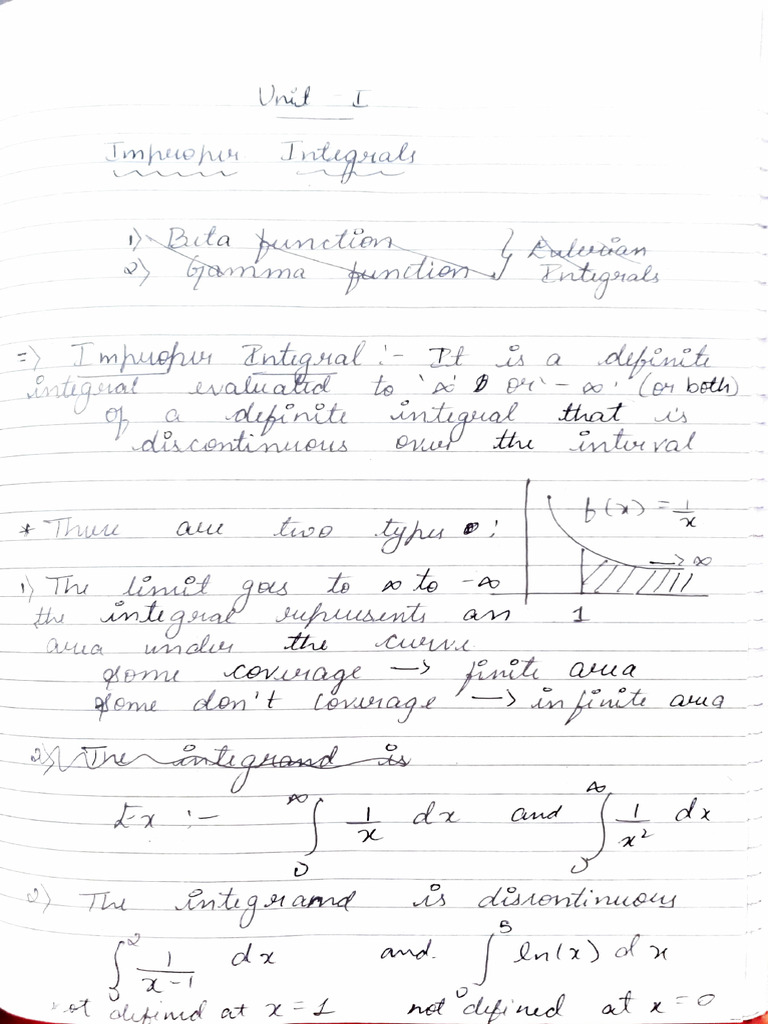 Unit - I
Improper Integrals
1) Beta function } Eulerian
2) Gamma function } Integrals
=> Improper Integral :- It is a definite
integral evaluated to '∞' or '-∞' (or both)
of a definite integral that is
discontinuous over the interval
f(x) = 1/x
* There are two types :
→ ∞
1) The limit goes to ∞ to -∞
the integral represents an
1
area under the curve
some coverage → finite area
some don't coverage → infinite area
2) The integrand is
Ex :- ∫₀^∞ 1/x dx and ∫₀^∞ 1/x² dx
2) The integrand is discontinuous
∫₀² 1/(x-1) dx and. ∫₀⁵ ln(x) dx
not defined at x = 1 not defined at x = 0